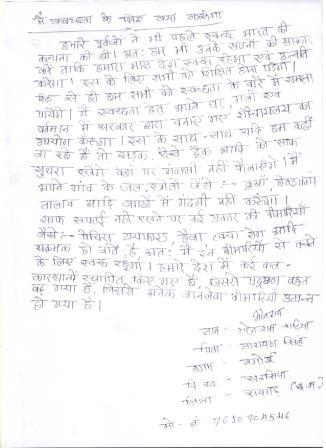 मैं स्वच्छता के लिए क्या करूंगा
हमारे पूर्वजों ने भी पहले स्वच्छ भारत की
कल्पना की थी। अतः हम भी उनके सपनों को साकार
करें ताकि हमारा भारत देश स्वच्छ रहेगा एवं उन्नति
करेगा। इस के लिए सभी को शिक्षित होना पड़ेगा।
शिक्षा से ही हम सभी को स्वच्छता के बारे में समझा
पायेंगे। मैं स्वच्छता हेतु अपने घर गली एवं
वर्तमान में सरकार द्वारा बनाए गए शौचालय का
उपयोग करूंगा। इस के साथ-साथ यदि हम कहीं
जा रहे हैं तो सड़क, रेल्वे ट्रैक आदि को साफ
सुथरा रखेंगे वहां पर गंदगी नहीं फैलायेंगे। मैं
अपने गांव के जल स्त्रोतों जैसे:- कुआं, हेण्डपंप
तालाब आदि जगहों में गंदगी नहीं करूंगा।
साफ सफाई नहीं रखने पर कई प्रकार की बीमारियाँ
जैसे:- पेचिस, टायफाइड, हैजा त्वचा रोग आदि
संक्रामक हो जाते हैं, अतः मैं इन बीमारियों से बचने
के लिए स्वच्छ रहूंगा। हमारे देश में कई कल-
कारखाने स्थापित किए गए हैं, जिससे प्रदूषण बहुत
बढ़ गया है, जिससे अनेक जानलेवा बीमारियाँ उत्पन्न
हो गया है।
भोजराम
नाम :- भोजराम
पिता :- नारायण सिंह
ग्राम :-
वि.ख. :- खरसिया
जिला :- रायगढ़ (छ.ग.)
मो. नं. 7610704546